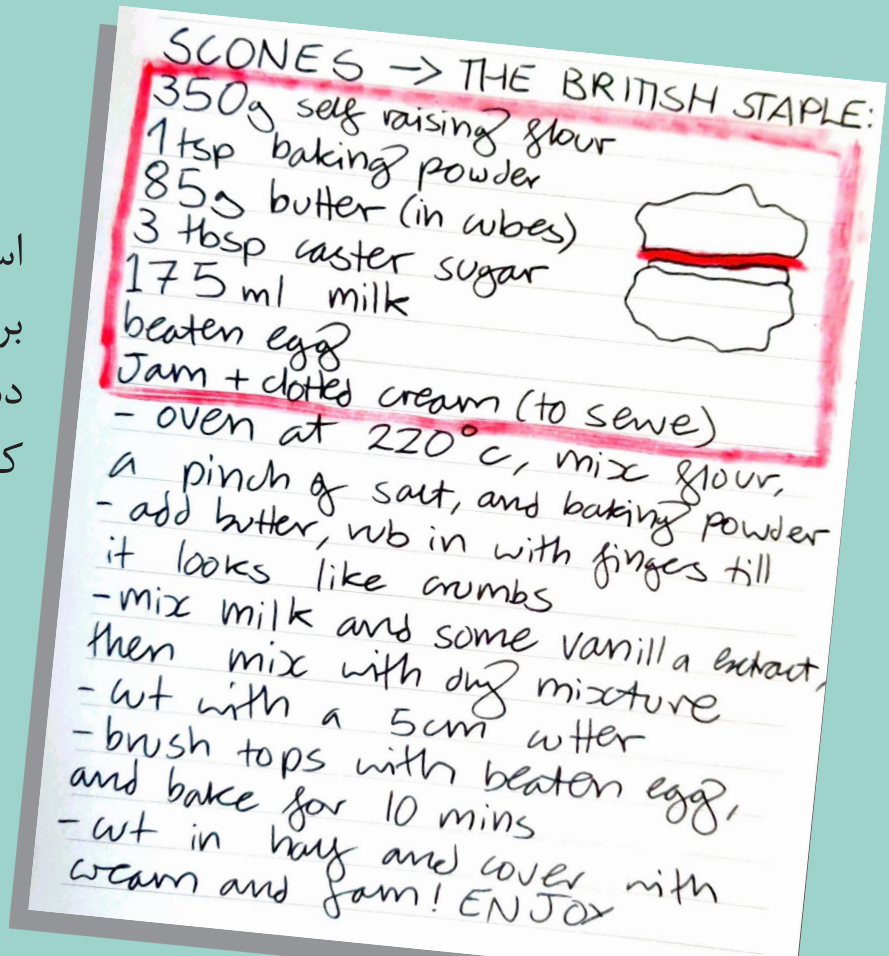 SCONES → THE BRITISH STAPLE:
350g self raising flour
1 tsp baking powder
85g butter (in cubes)
3 tbsp caster sugar
175ml milk
beaten egg
Jam + clotted cream (to serve)
- oven at 220°C, mix flour,
a pinch of salt, and baking powder
- add butter, rub in with finges till
it looks like crumbs
- mix milk and some vanilla extract,
then mix with dry mixture
- cut with a 5cm cutter
- brush tops with beaten egg,
and bake for 10 mins
- cut in half and cover with
cream and jam! ENJOY